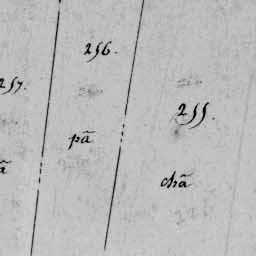 256.
257.
255.
pã
ã
chã